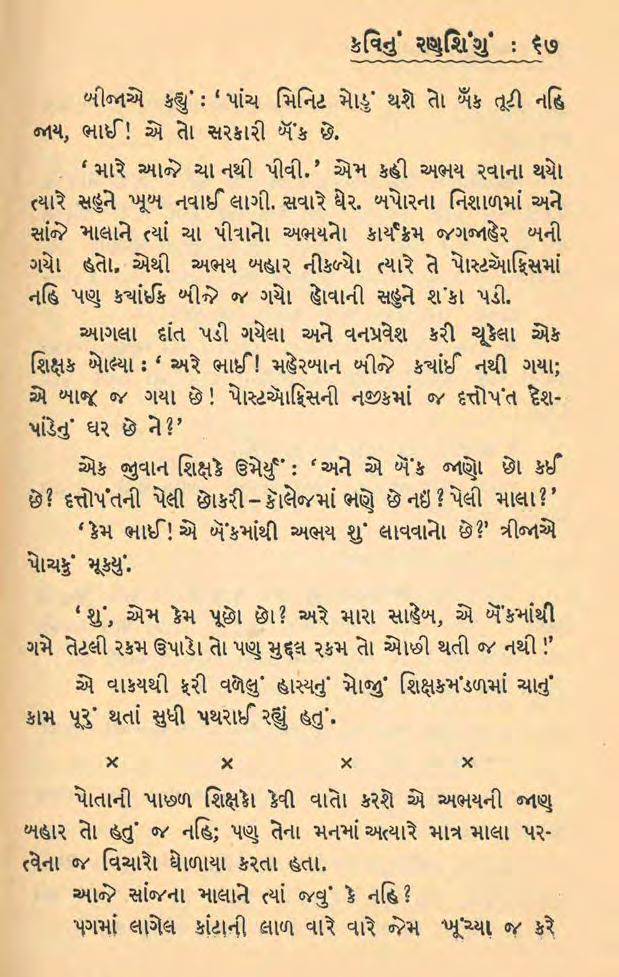 કવિનું રણશિંગું : ૬૭
બીજાએ કહ્યું : ‘ પાંચ મિનિટ મોડું થશે તો બૅંક તૂટી નહિ
જાય, ભાઈ! એ તો સરકારી બૅંક છે.
‘ મારે આજે ચા નથી પીવી.’ એમ કહી અભય રવાના થયો
ત્યારે સહુને ખૂબ નવાઈ લાગી. સવારે ઘેર. બપોરના નિશાળમાં અને
સાંજે માલાને ત્યાં ચા પીવાનો અભયનો કાર્યક્રમ જગજાહેર બની
ગયો હતો. એથી અભય બહાર નીકળ્યો ત્યારે તે પોસ્ટઑફિસમાં
નહિ પણ ક્યાંઈક બીજે જ ગયો હોવાની સહુને શંકા પડી.
આગલા દાંત પડી ગયેલા અને વનપ્રવેશ કરી ચૂકેલા એક
શિક્ષક બોલ્યા : ‘ અરે ભાઈ! મહેરબાન બીજે ક્યાંઈ નથી ગયા;
એ બાજૂ જ ગયા છે! પોસ્ટઑફિસની નજીકમાં જ દત્તોપંત દેશ-
પાંડેનું ઘર છે ને?’
એક જુવાન શિક્ષકે ઉમેર્યું : ‘અને એ બૅંક જાણો છો કઈ
છે? દત્તોપંતની પેલી છોકરી – કૉલેજમાં ભણે છે નઇ? પેલી માલા?’
‘કેમ ભાઈ! એ બૅંકમાંથી અભય શું લાવવાનો છે?’ ત્રીજાએ
પોચકું મૂક્યું.
‘શું, એમ કેમ પૂછો છો? અરે મારા સાહેબ, એ બૅંકમાંથી
ગમે તેટલી રકમ ઉપાડો તો પણ મુદ્દલ રકમ તો ઓછી થતી જ નથી !’
એ વાક્યથી ફરી વળેલું હાસ્યનું મોજું શિક્ષકમંડળમાં ચાનું
કામ પૂરું થતાં સુધી પથરાઈ રહ્યું હતું.
× × × ×
પોતાની પાછળ શિક્ષકો કેવી વાતો કરશે એ અભયની જાણ
બહાર તો હતું જ નહિ; પણ તેના મનમાં અત્યારે માત્ર માલા પર-
ત્વેના જ વિચારો ઘોળાયા કરતા હતા.
આજે સાંજના માલાને ત્યાં જવું કે નહિ?
પગમાં લાગેલ કાંટાની લાળ વારે વારે જેમ ખૂંચ્યા જ કરે